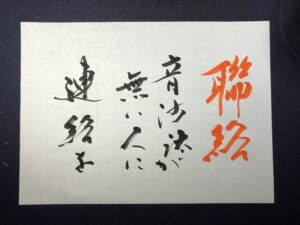 聯絡
音沙汰が
無い人に
連絡を